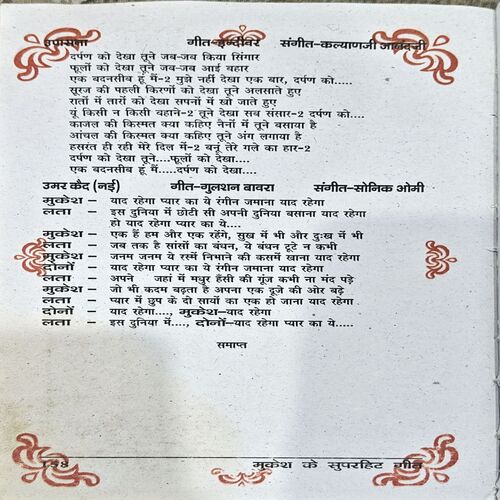 उपासना गीत-इन्दीवर संगीत-कल्याणजी आनंदजी
दर्पण को देखा तूने जब-जब किया सिंगार
फूलों को देखा तूने जब-जब आई बहार
एक बदनसीब हूं मैं-2 मुझे नहीं देखा एक बार, दर्पण को.....
सूरज की पहली किरणों को देखा तूने अलसाते हुए
रातों में तारों को देखा सपनों में खो जाते हुए
यूं किसी न किसी बहाने-2 तूने देखा सब संसार-2 दर्पण को....
काजल की किस्मत क्या कहिए नैनों में तूने बसाया है
आंचल की किस्मत क्या कहिए तूने अंग लगाया है
हसरत ही रही मेरे दिल में-2 बनूं तेरे गले का हार-2
दर्पण को देखा तूने....फूलों को देखा....
एक बदनसीब हूं मैं.....दर्पण को देखा....
उमर कैद (नई) गीत-गुलशन बावरा संगीत-सोनिक ओमी
मुकेश – याद रहेगा प्यार का ये रंगीन जमाना याद रहेगा
लता – इस दुनिया में छोटी सी अपनी दुनिया बसाना याद रहेगा
हो याद रहेगा प्यार का ये....
मुकेश – एक हैं हम और एक रहेंगे, सुख में भी और दुःख में भी
लता – जब तक है सांसों का बंधन, ये बंधन टूटे न कभी
मुकेश – जनम जनम ये रस्में निभाने की कसमें खाना याद रहेगा
दोनों – याद रहेगा प्यार का ये रंगीन जमाना याद रहेगा
लता – अपने जहां में मधुर हँसी की गूंज कभी ना मंद पड़े
मुकेश – जो भी कदम बढ़ता है अपना एक दूजे की ओर बढ़े
लता – प्यार में छुप के दो सायों का एक हो जाना याद रहेगा
दोनों – याद रहेगा...., मुकेश-याद रहेगा
लता – इस दुनिया में...., दोनों-याद रहेगा प्यार का ये.....
समाप्त
मुकेश के सुपरहिट गीत